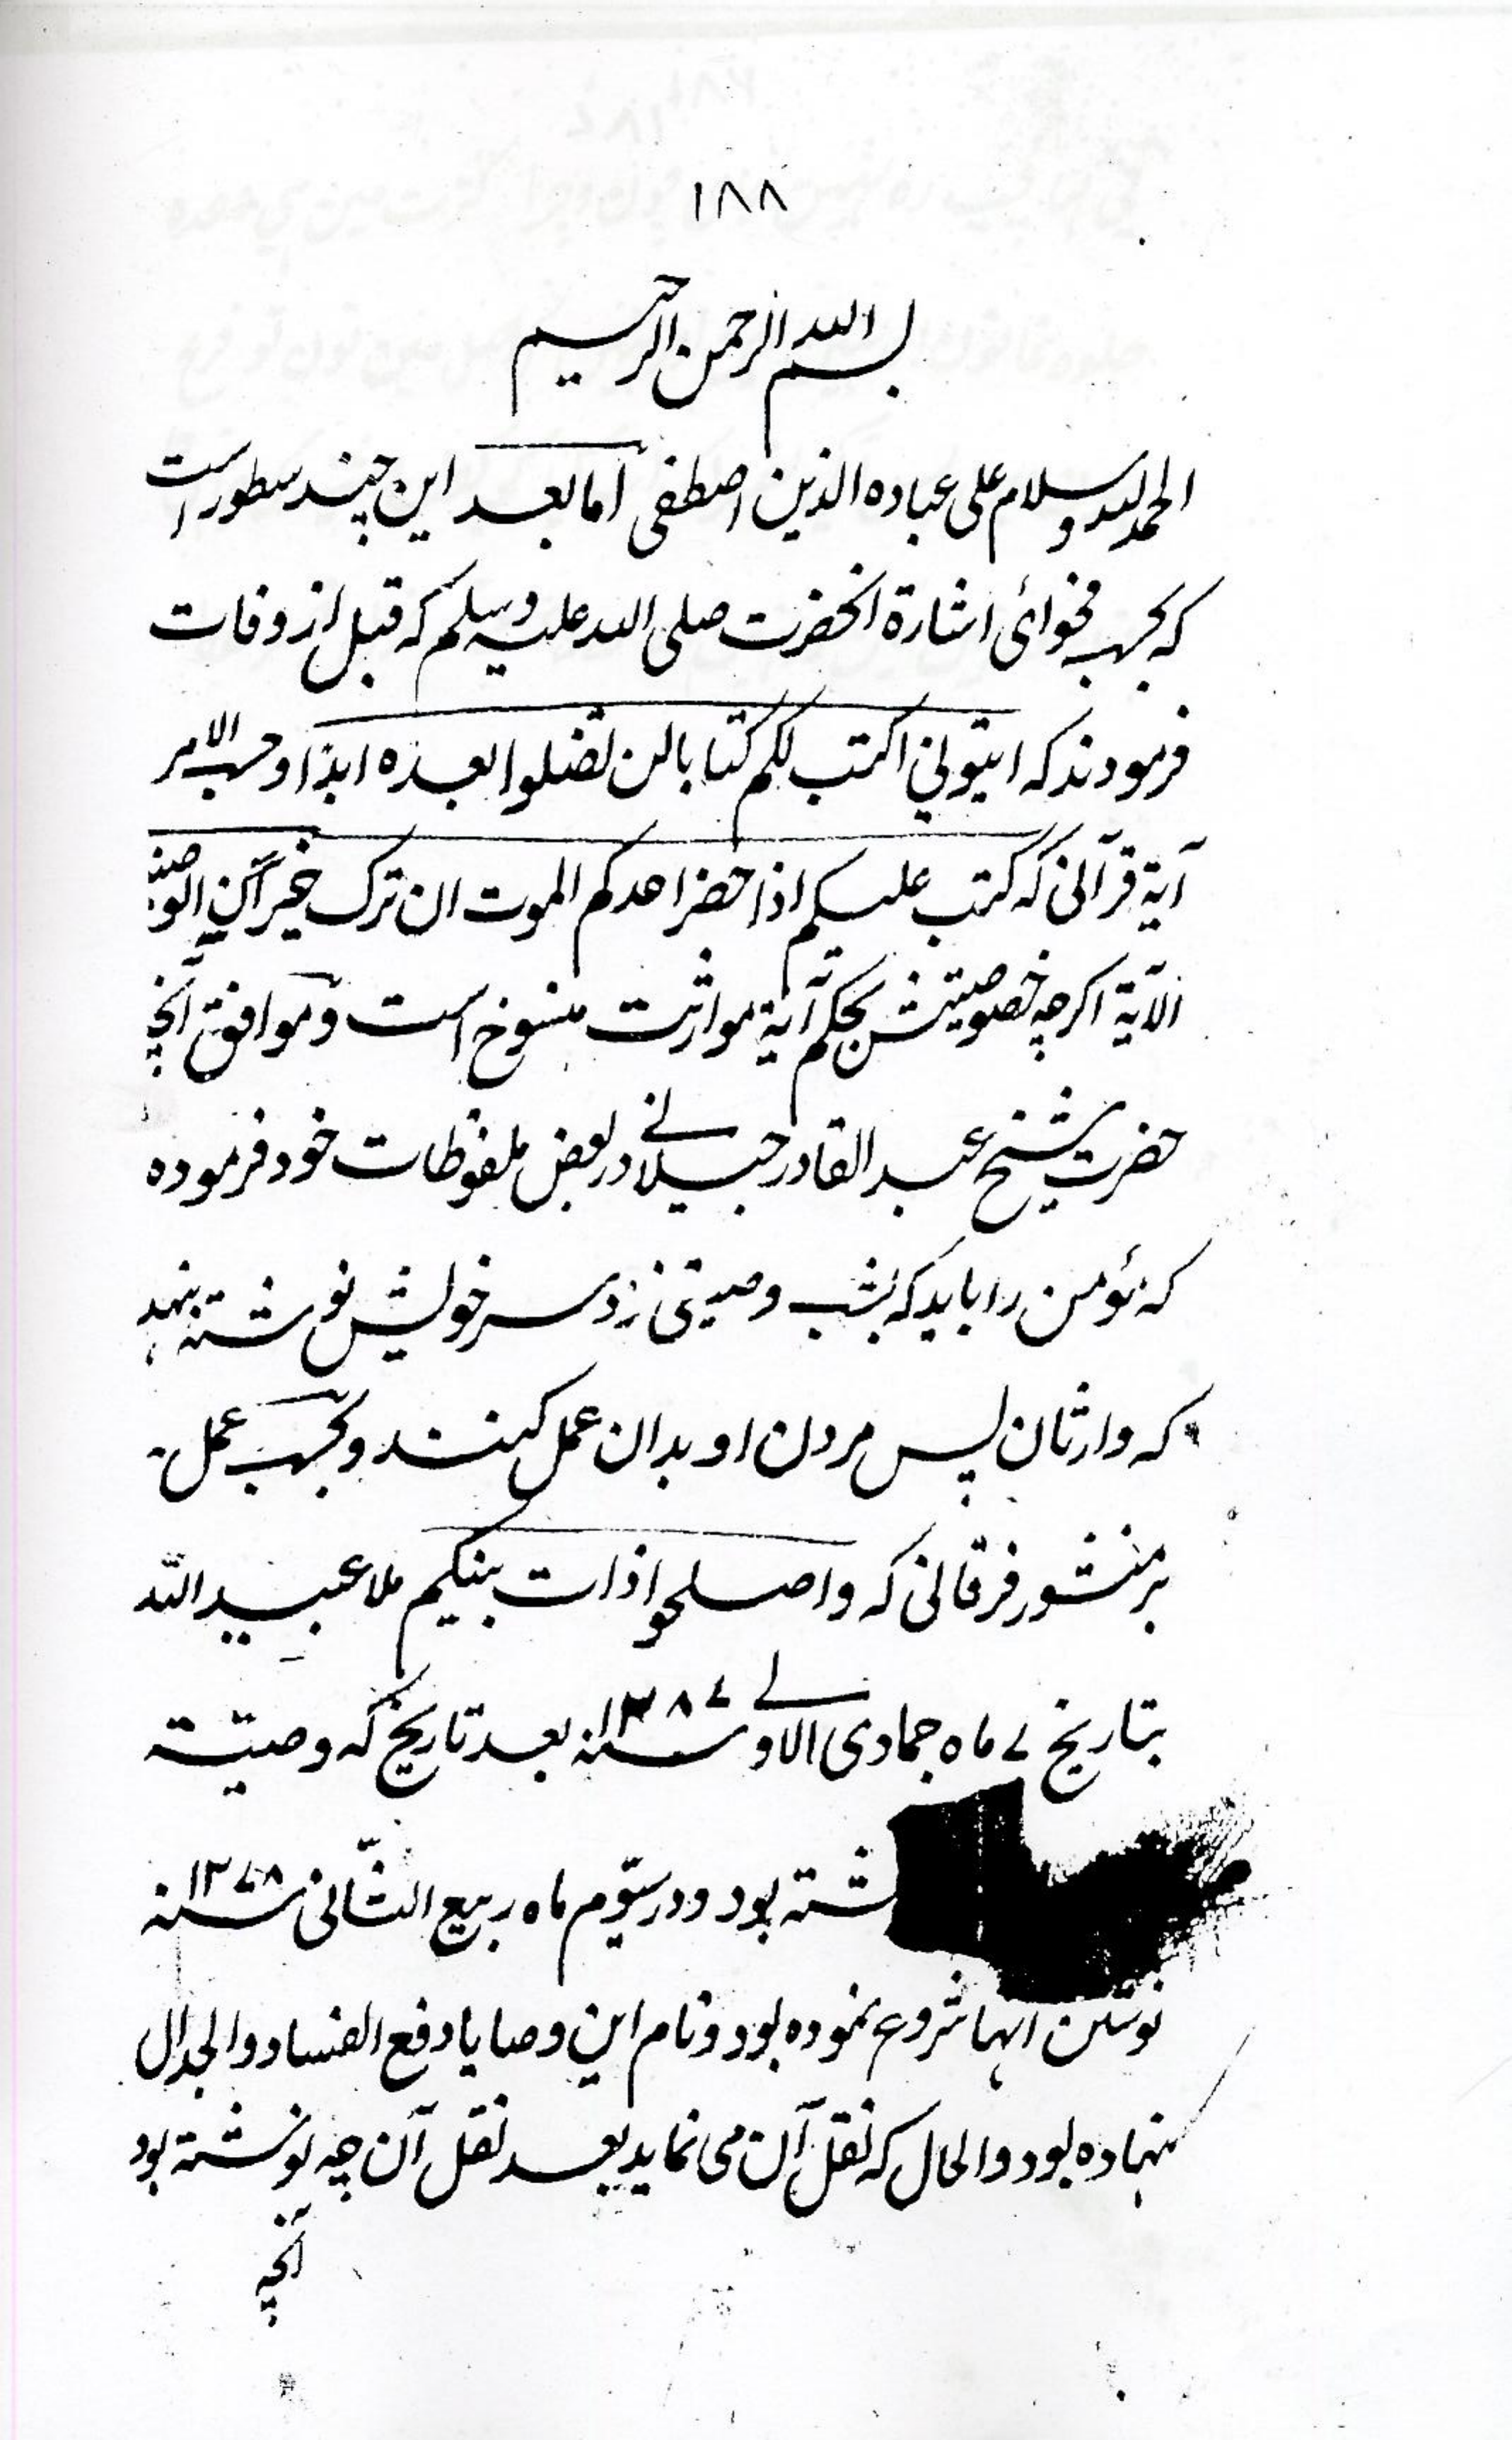 ۱۸۸
بسم الله الرحمن الرحیم
الحمد لله وسلام علی عباده الذین اصطفی اما بعد این چند سطور است
که بحسب فحوائ اشارة انحضرت صلی الله علیه وسلم که قبل از وفات
فرمودند که ایتونی اکتب لکم کتابا لن تضلوا بعده ابدا وحسب الامر
آیة قرآنی که کتب علیکم اذا حضر احدکم الموت ان ترک خیراً ن الوصیة
الآیة اگرچه خصوصیتش بحکم آیة مواثرت منسوخ است و موافق آنچه
حضرت شیخ عبد القادر جیلانی در بعض ملفوظات خود فرموده
که مؤمن را باید که بشب وصیتی نزد سر خویش نوشته بنهد
که وارثان پس مردن او بدان عمل کنند و بحسب عمل
بر منشور فرقانی که واصلحوا ذات بینکم ملا عبید الله
بتاریخ ۷ ماه جمادی الاولی سنه ۱۳۸۷ بعد تاریخ که وصیته
شته بود و در سیّوم ماه ربیع الثّانی سنه ۱۳۷۸
نوشتن انها شروع نموده بود و نام این وصایا دفع الفساد والجدال
نهاده بود والحال که نقل آن می نماید بعد نقل آن چه نوشته بود
آنچه